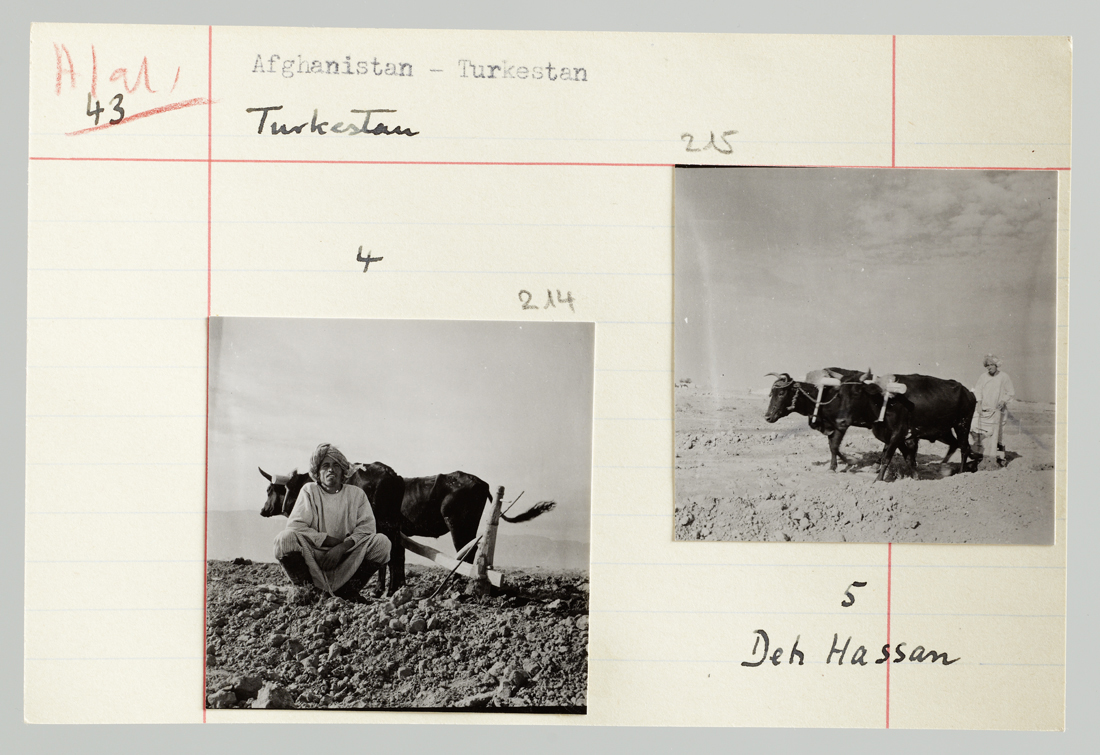 Afghanistan - Turkestan
43
Turkestan
215
4
214
5
Deh Hassan